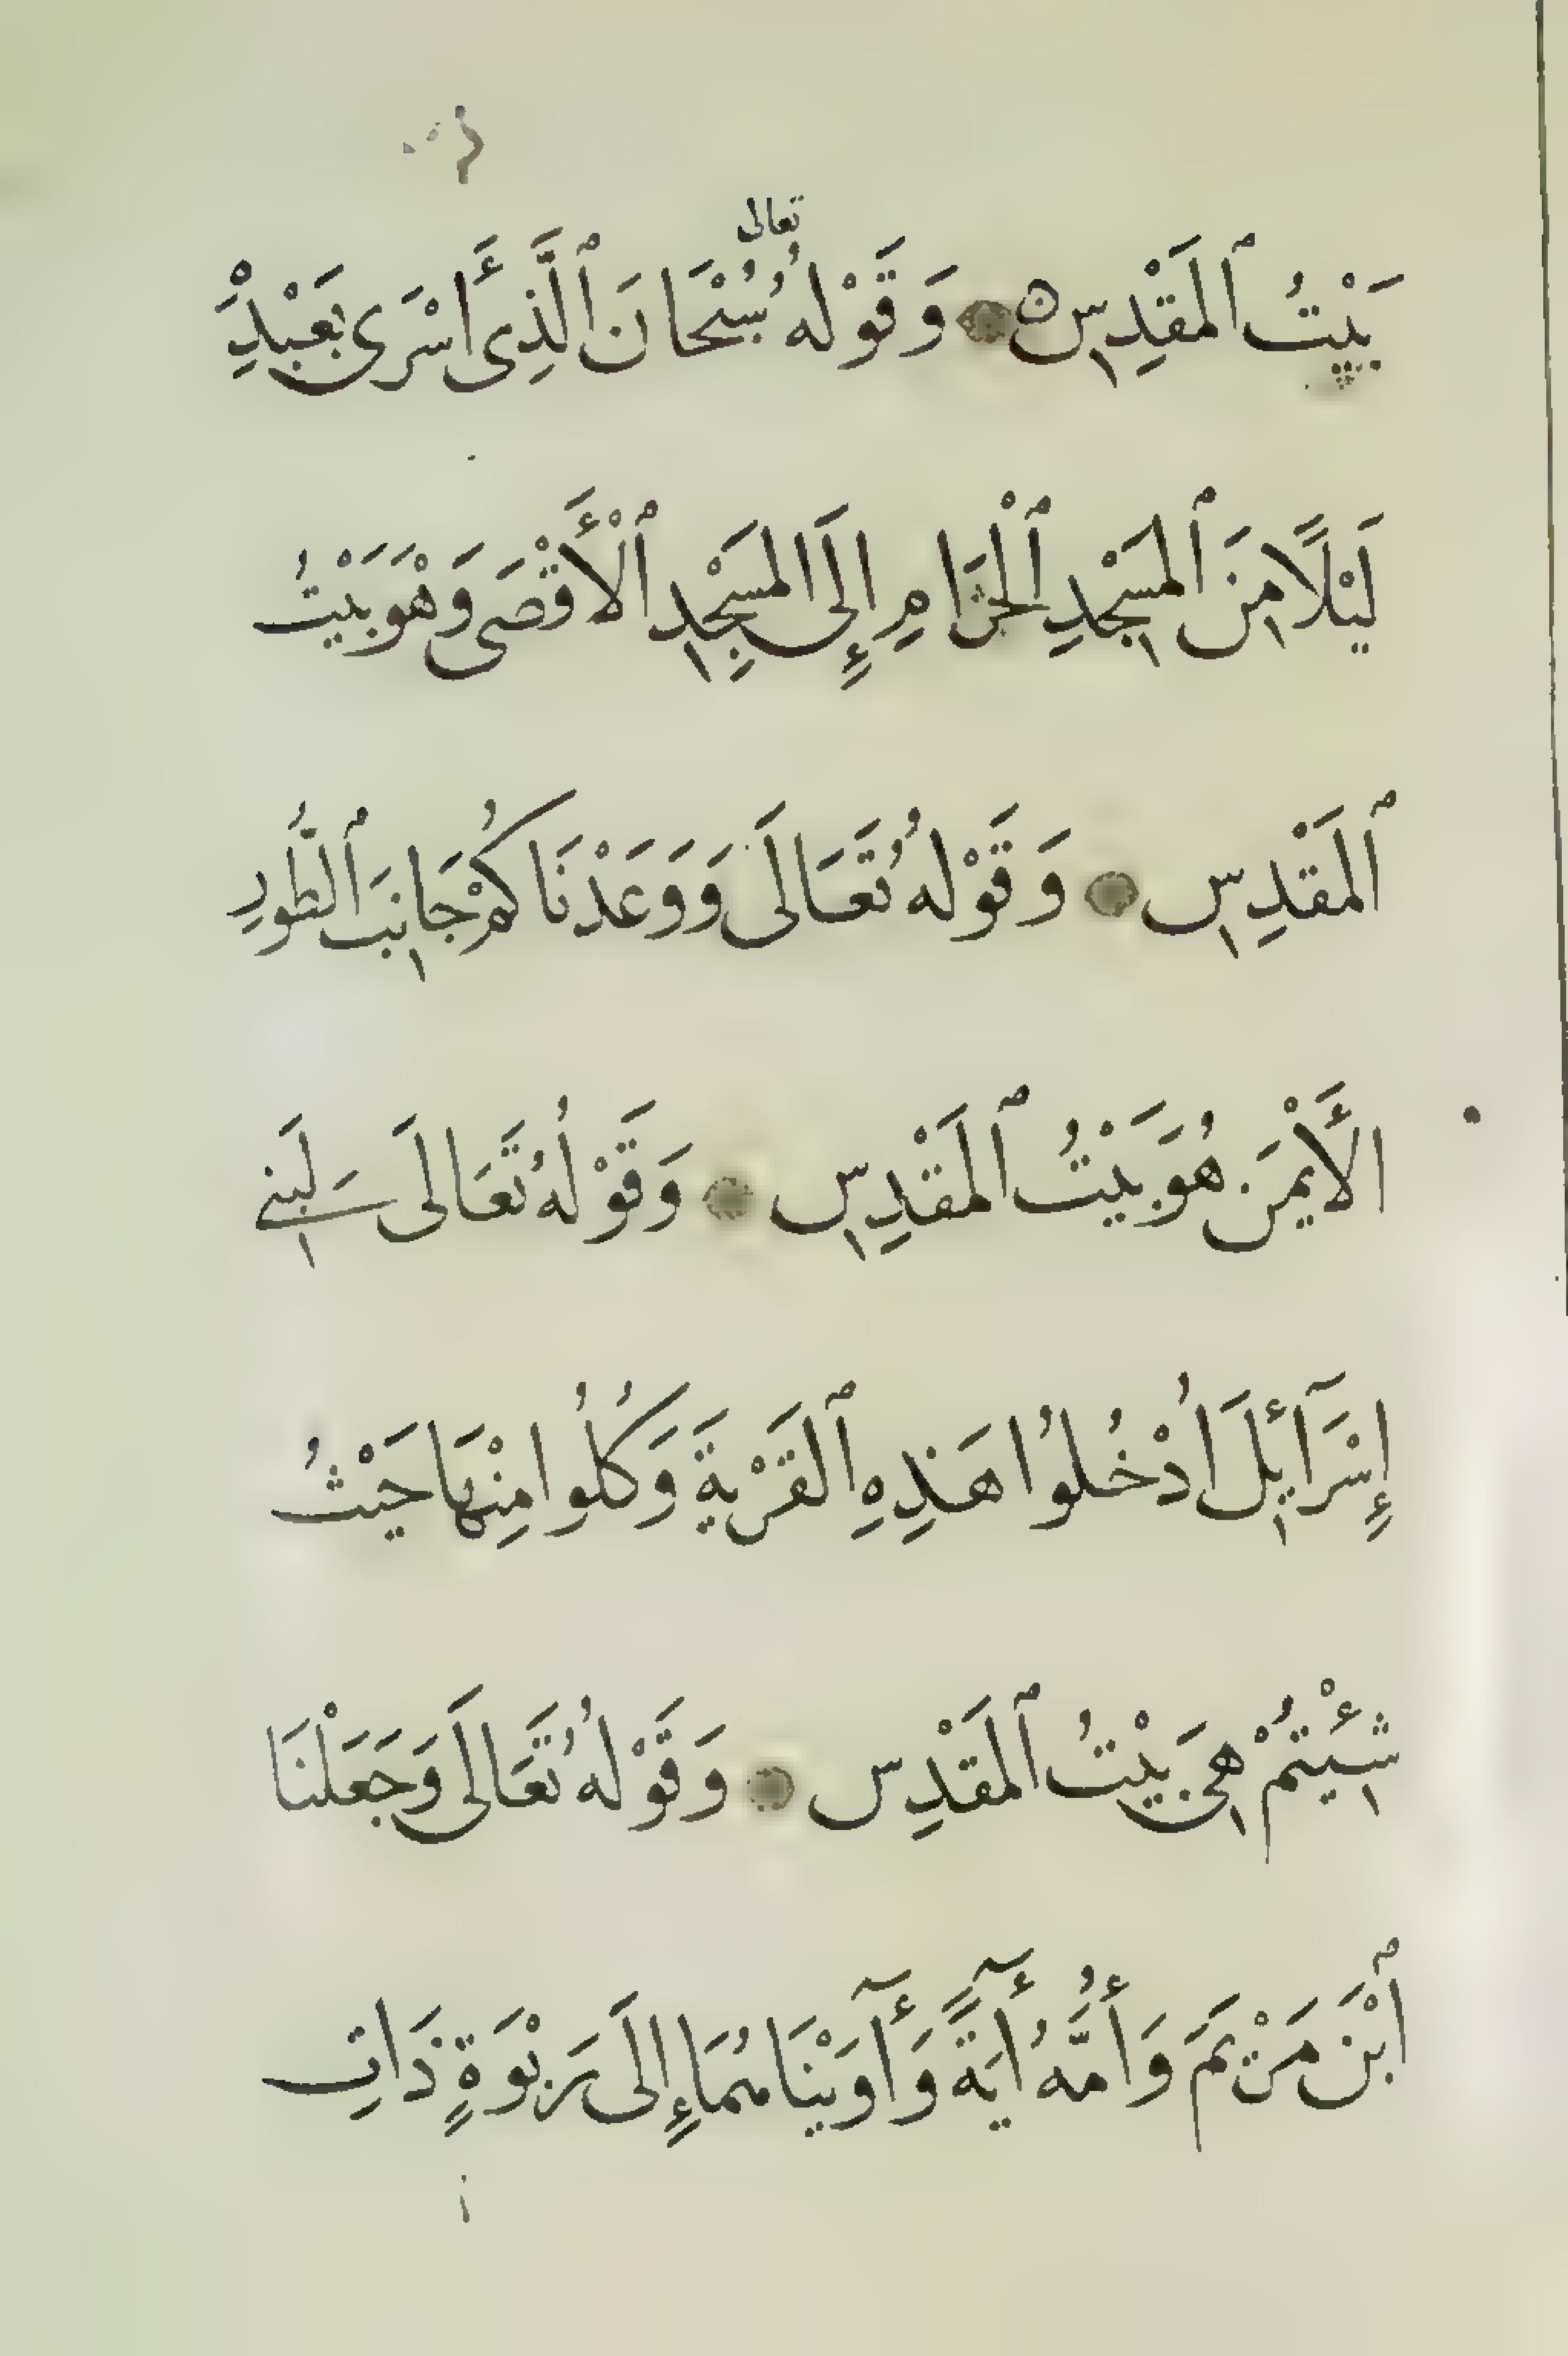 تعالى
بَيْتُ ٱلمَقْدِسِ ۝ وَقَوْلهُ سُبْحَانَ ٱلَّذِى أَسْرَى بِعَبْدِهْ
لَيْلًا مِنَ ٱلمَسْجِدِ ٱلْحَرَامِ إِلَى المَسْجِدِ ٱلْأَقْصَى وَهْوَ بَيْتُ
ٱلمَقْدِسِ وَقَوْلهُ تَعَالَى وَوَعَدْنَاكُمْ جَانِبَ ٱلطُّورِ
الأَيْمَنَ هُوَ بَيْتُ ٱلمَقْدِسِ وَقَوْلُهُ تَعَالَى لِبَنِي
إِسْرَآئِلَ ادْخُلُوا هَذِهِ ٱلقَرْيَةَ وَكُلُوا مِنْهَا حَيْثُ
شِئْتُمْ هِىَ بَيْتُ ٱلمَقْدِس وَقَوْلهُ تَعَالَى وَجَعَلْنَا
ٱبْنَ مَرْيَمَ وَأُمَّهُ أَيَةً وَأَوَيْنَاهُمَا إِلَى رَبْوَةٍ ذَاتِ